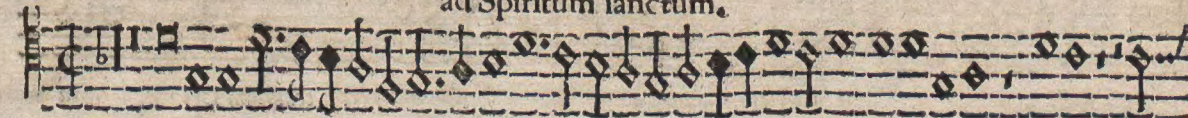 ad Spiritum sanctum.